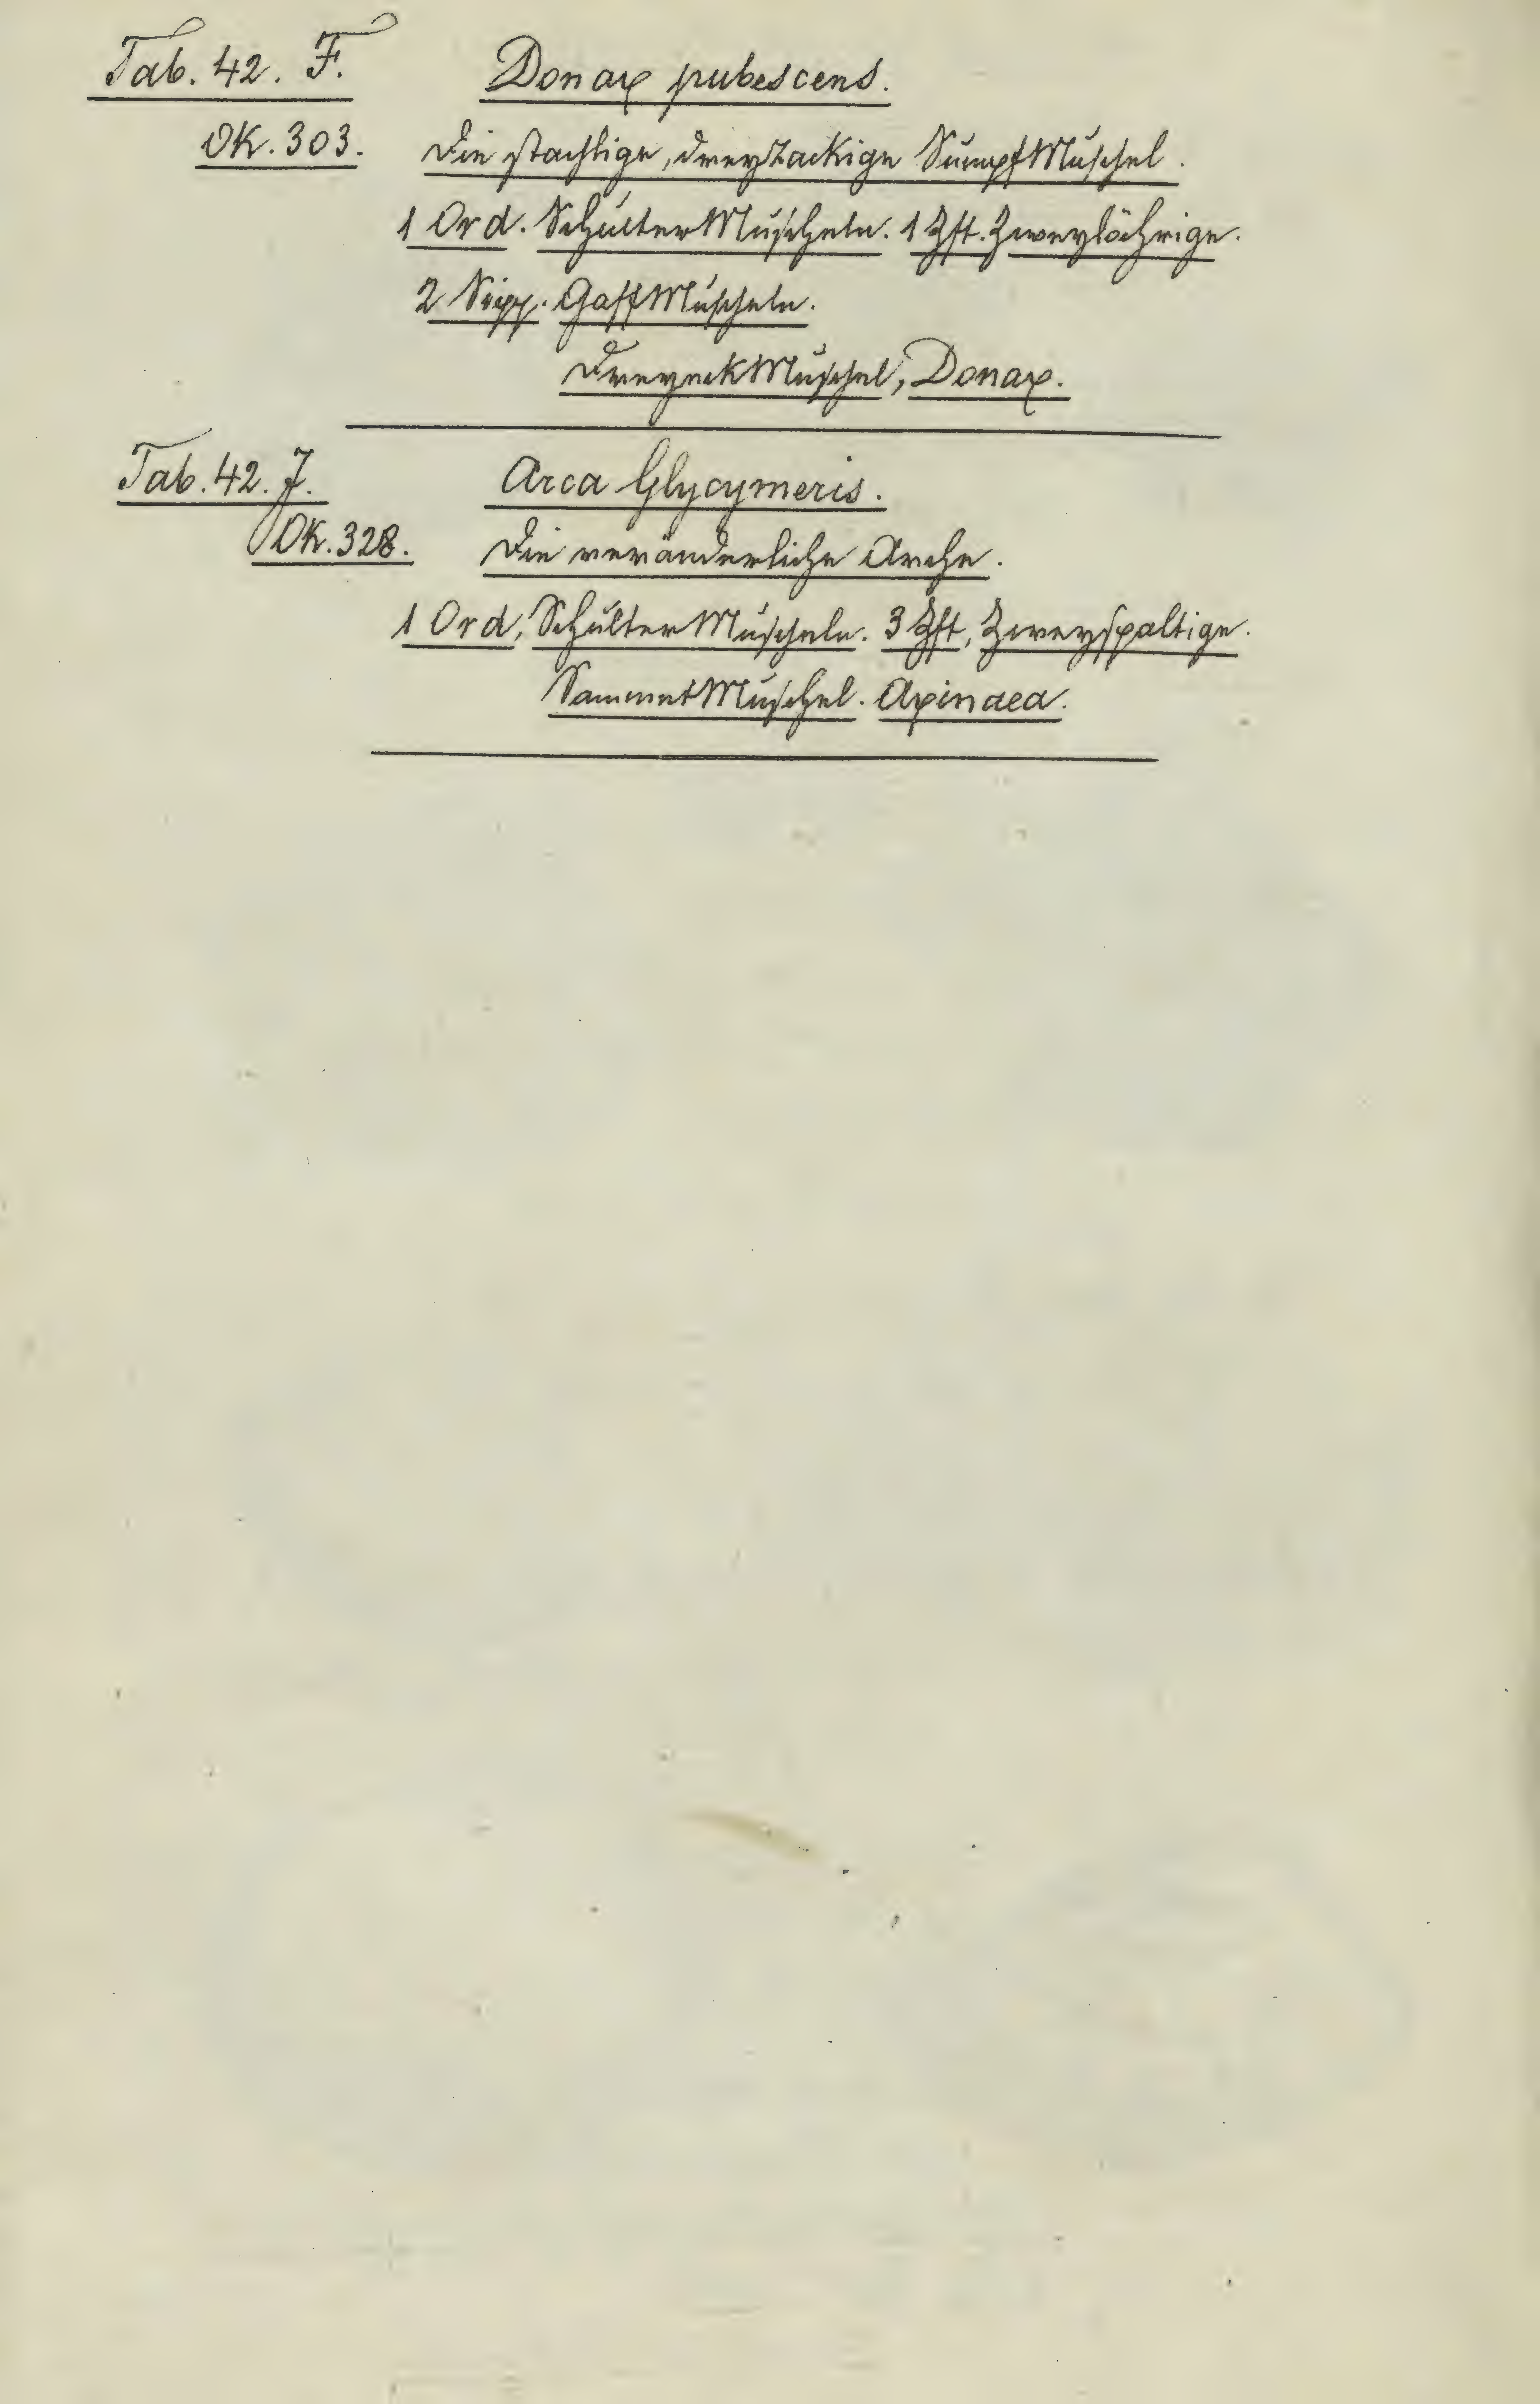 Tab. 42. F. Donax pubescens.
Ok. 303. Die stachlige, dreyzackige SumpfMuschel.
1 Ord. SchulterMuscheln. 1 Zft. Zweylöchrige.
2 Sipp. GaffMuscheln.
DreyeckMuschel, Donax.
Tab. 42. J. Arca Glycymeris.
Ok. 328. Die veränderliche Arche.
1 Ord, SchulterMuscheln. 3 Zft, Zweyspaltige.
SammetMuschel. Axinaea.